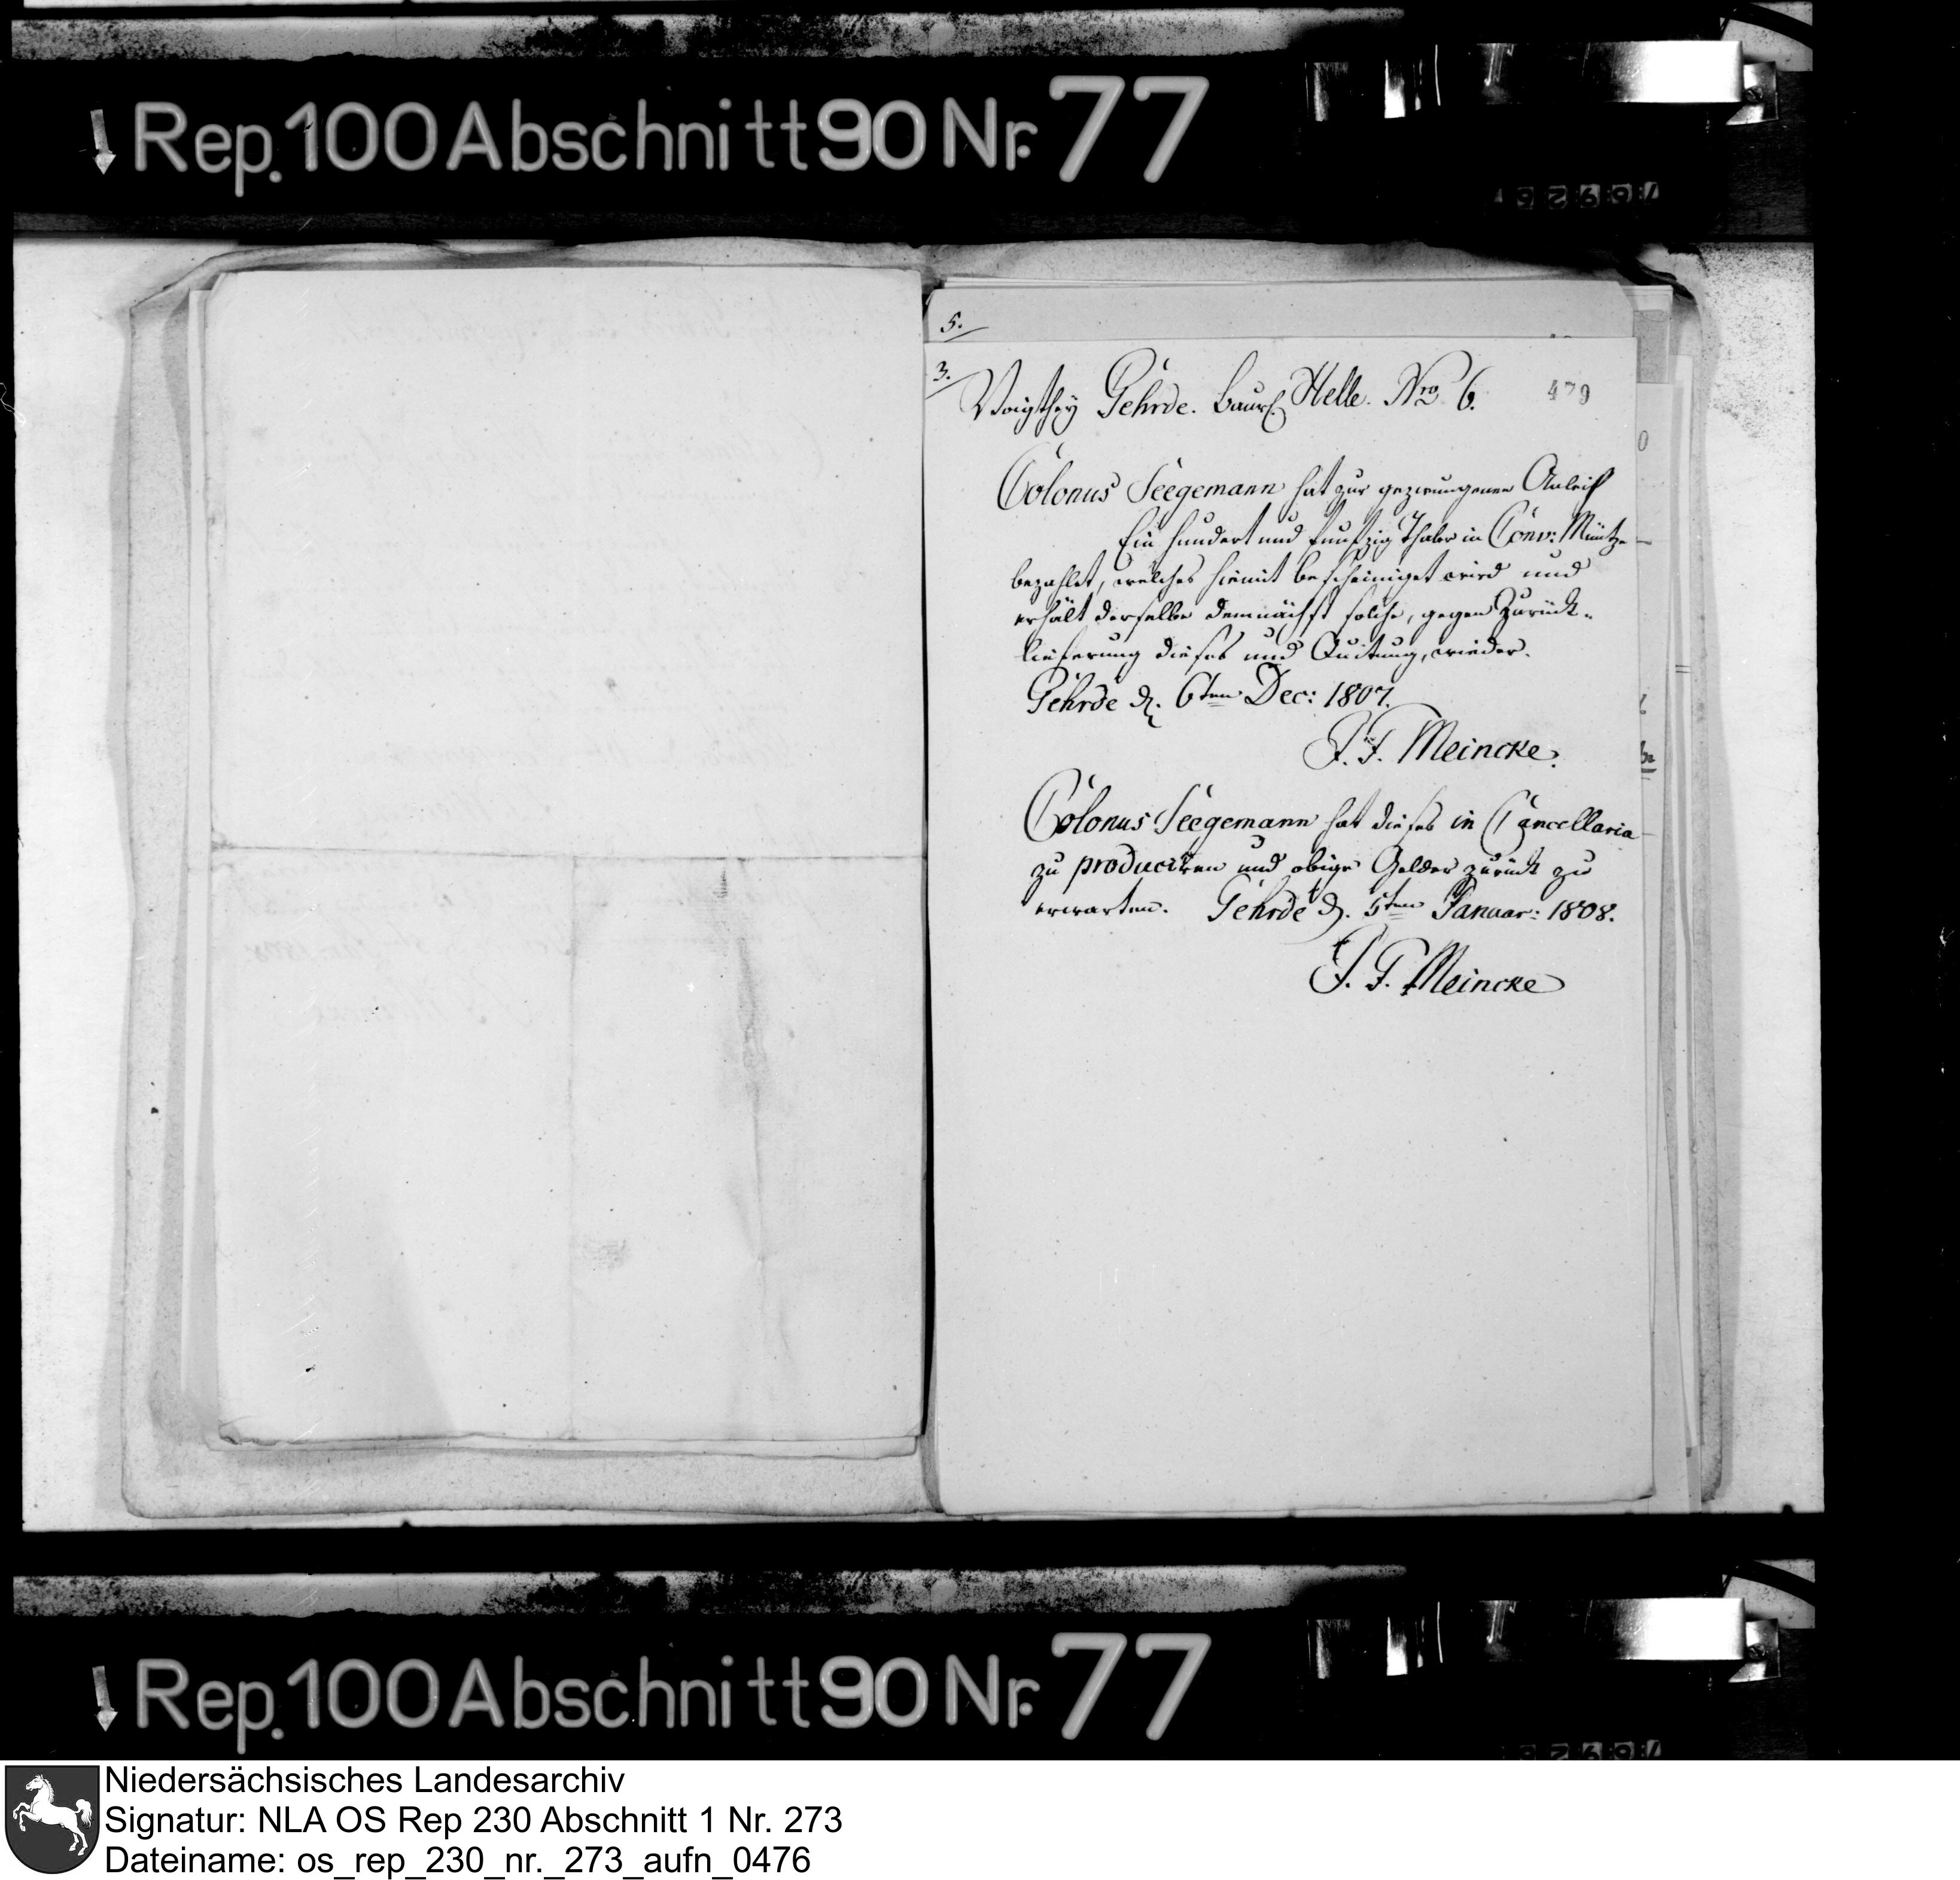 Rep. 100 Abschnitt 90 Nr. 77
5.
3.
Voigthey Gehrde. Baurs. Helle. Nro 6.
479
Colonus Seegemann hat zur gezwungenen Anleih
Ein hundert und funfzig Thaler in Conv: Müntze
bezahlet, welches hiemit bescheiniget wird und
erhält derselbe demnächst solche, gegen Zurück-
lieferung dieses und Quitung, wieder.
Gehrde d. 6ten Dec: 1807.
J. F. Meincke.
Colonus Seegemann hat dieses in Cancellaria
zu produciren und obige Gelder zurück zu
erwarten. Gehrde d. 5ten Januar: 1808.
J. F. Meincke
Rep. 100 Abschnitt 90 Nr. 77
Niedersächsisches Landesarchiv
Signatur: NLA OS Rep 230 Abschnitt 1 Nr. 273
Dateiname: os_rep_230_nr._273_aufn_0476